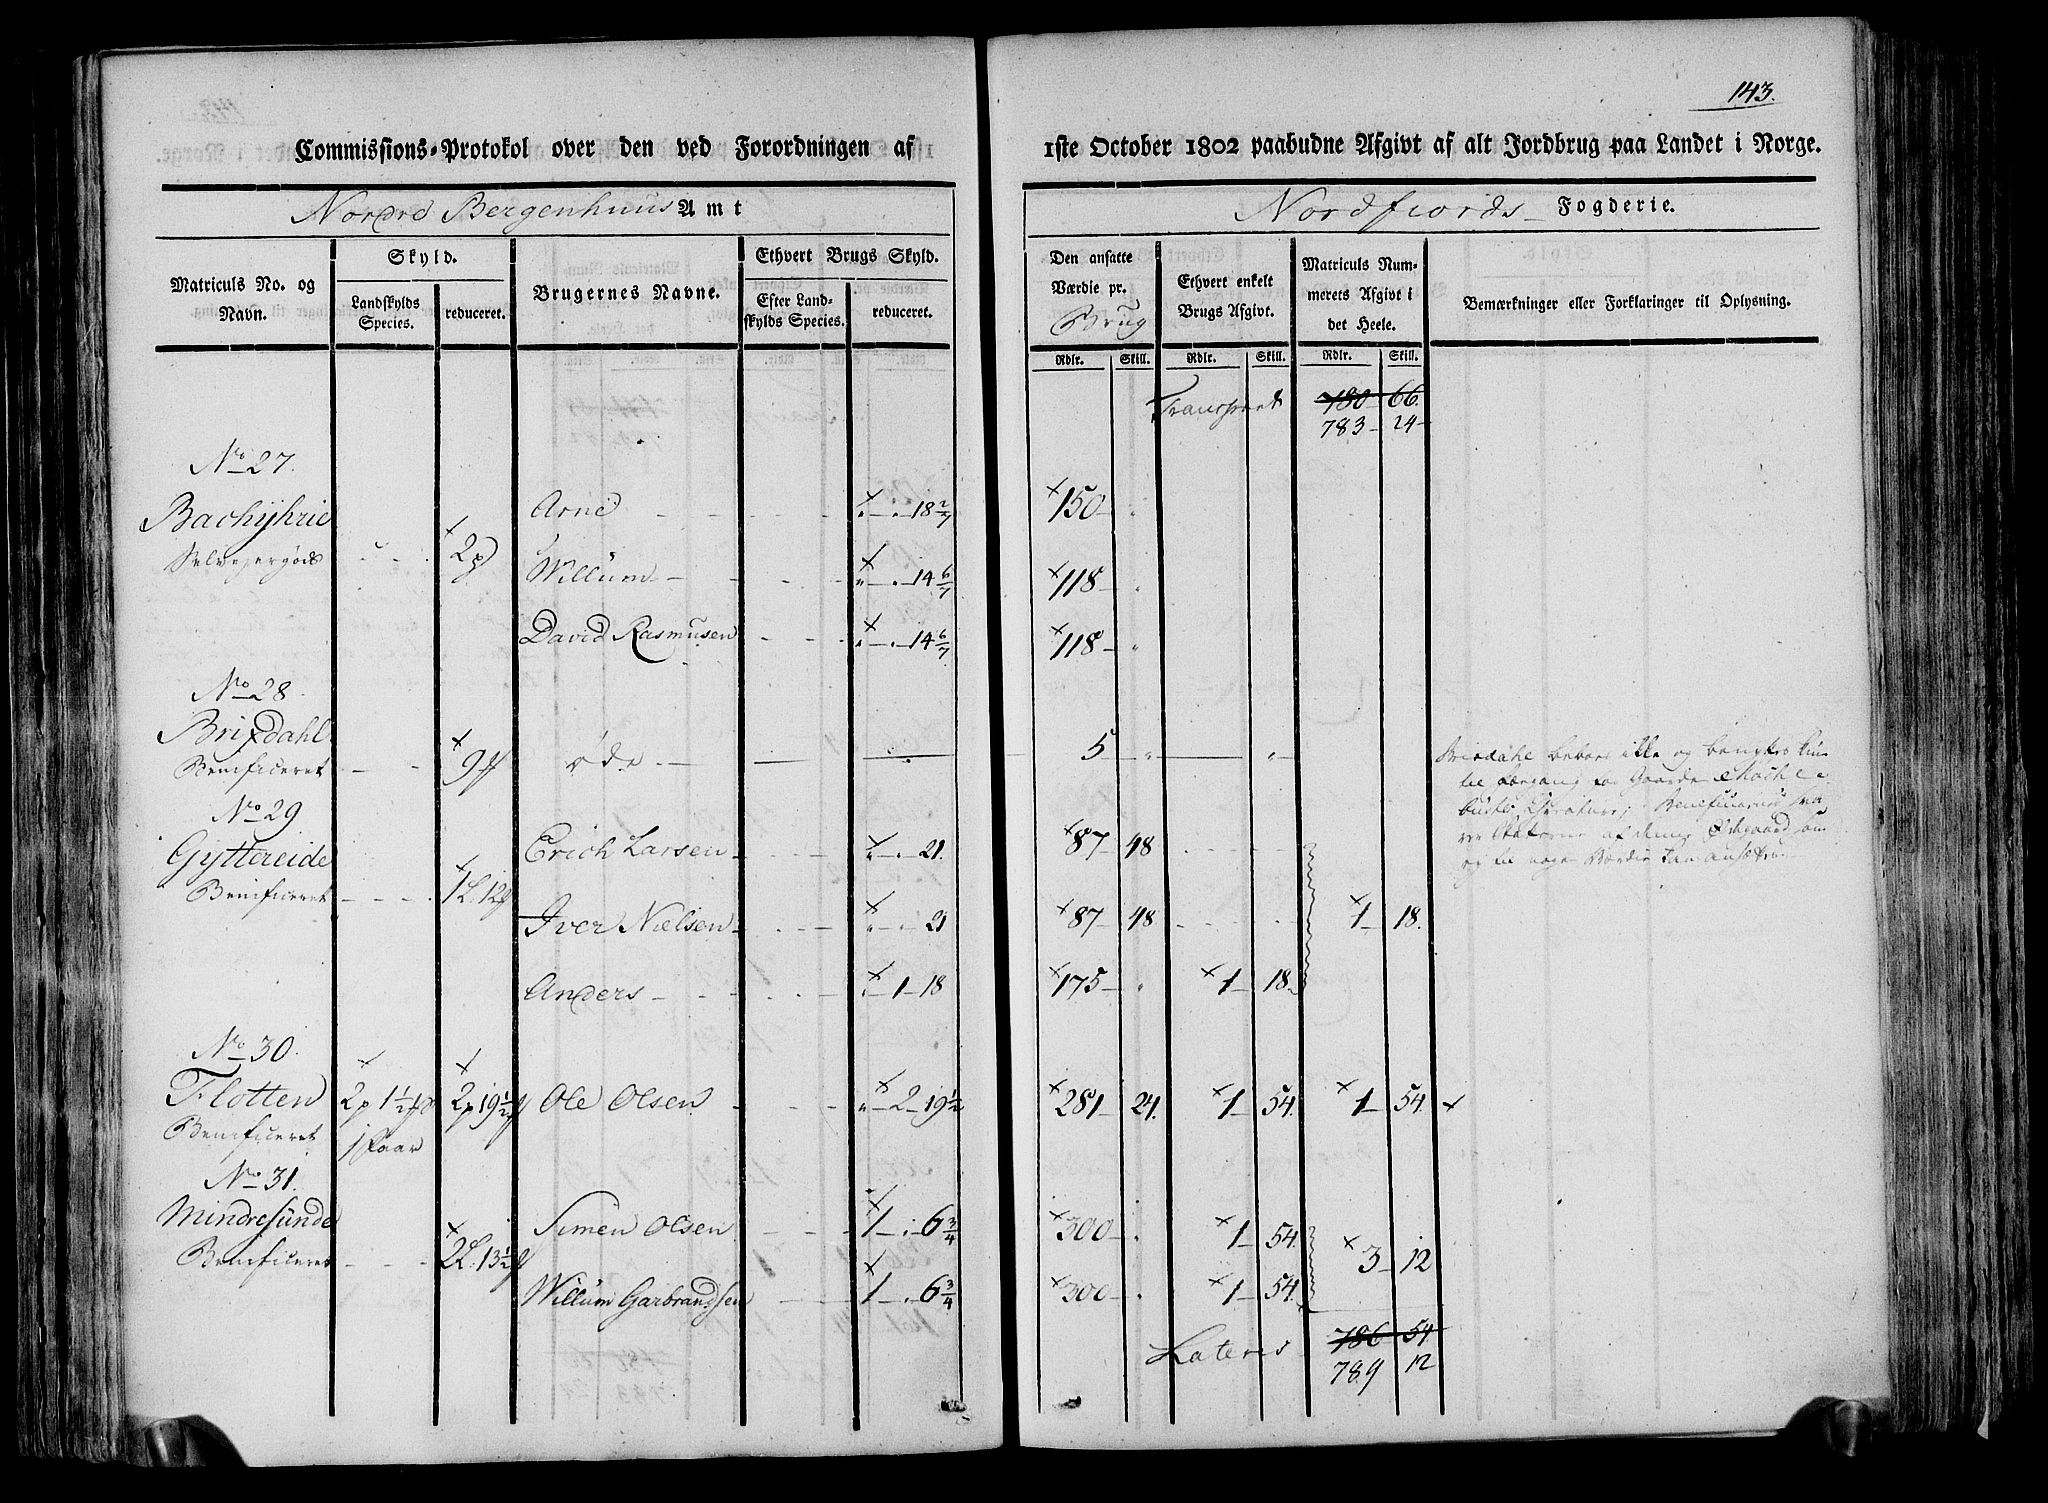 143.
Commissions-Protokol over den ved Forordningen af 1ste October 1802 paabudne Afgivt af alt Jordbrug paa Landet i Norge.
Nordre Bergenhuus Amt Nordfiords Fogderie.
Matriculs No. og Navn.
Skyld.
Landskylds Species.
reduceret.
Brugernes Navne.
Ethvert Brugs Skyld.
Efter Landskylds Species.
reduceret.
Den ansatte Værdie pr. Brug
Rdlr. Skill.
Ethvert enkelt Brugs Afgivt.
Rdlr. Skill.
Matriculs Nummerets Afgivt i det Heele.
Rdlr. Skill.
Bemærkninger eller Forklaringer til Oplysning.
Transport 780 66.
783 24
No 27.
Bachijhrie Arne 18 2/7 150
Selvejergods 2p Willum 14 6/7 118
David Rasmusen 14 6/7 118
No 28.
Brixdahl
Benificeret 9 øde 5
Brixdahl beboes ikke og
No 29
Gyttereide Erich Larsen 21. 87 48
Benificeret 1L. 12 Iver Nielsen 21 87 48 1 18.
Anders 1 18 175 1 18.
No 30.
Flotten 2p 1 1/2 2p 19 1/2 Ole Olsen 2 19 1/2 281 24. 1 54. 1 54.
Benificeret 1 Faar
No 31.
Mindresunde Simen Olsen 1 6 3/4 300 1 54.
Benificeret 2L. 13 1/2 3 12
Willum Garbrandsen 1 6 3/4 300 1 54.
Lateris 786 54
789 12